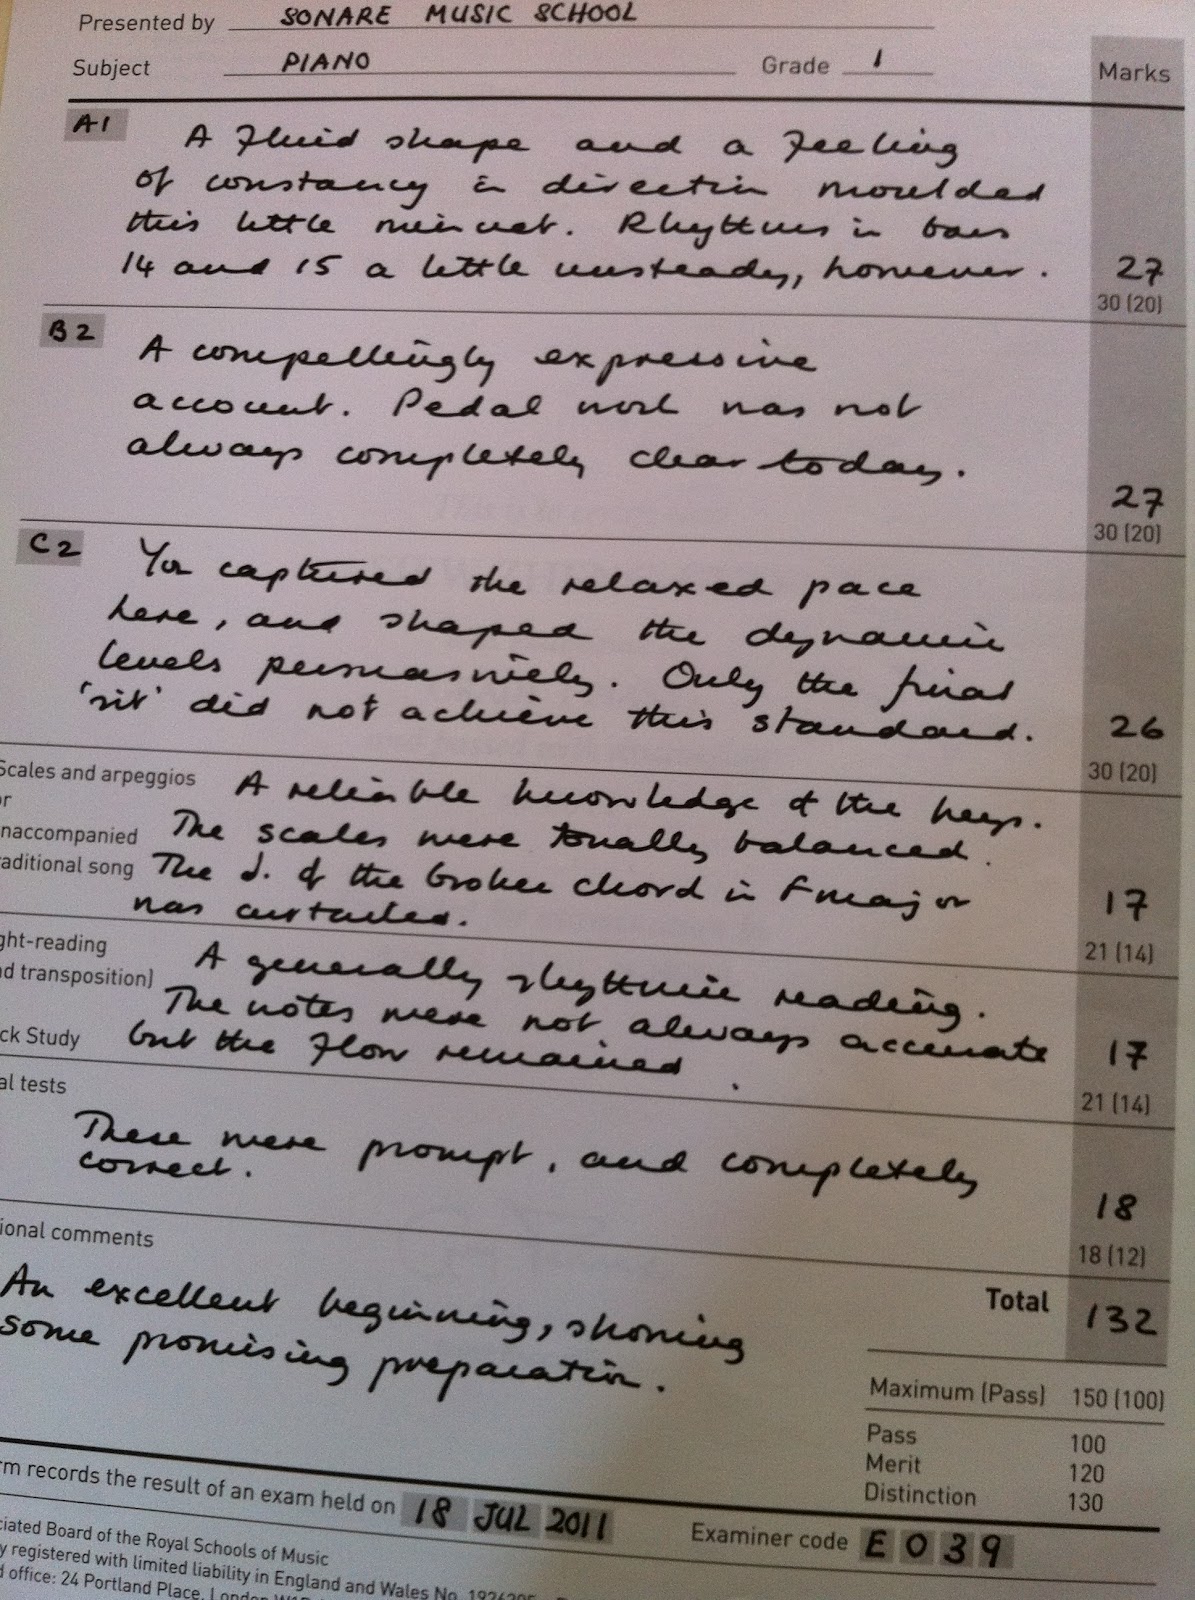 Presented by SONARE MUSIC SCHOOL
Subject PIANO Grade 1
Marks
A1 A fluid shape and a feeling
of constancy in direction moulded
this little minuet. Rhythms in bars
14 and 15 a little unsteady, however. 27
30 (20)
B2 A compellingly expressive
account. Pedal work was not
always completely clear today.
27
30 (20)
C2 You captured the relaxed pace
here, and shaped the dynamic
levels persuasively. Only the final
'rit' did not achieve this standard. 26
30 (20)
Scales and arpeggios A reliable knowledge of the keys.
or
naccompanied The scales were tonally balanced.
raditional song The d. of the broken chord in F major 17
was curtailed.
21 (14)
ght-reading A generally rhythmic reading.
nd transposition) The notes were not always accurate
ck Study but the flow remained. 17
21 (14)
al tests
These were prompt, and completely
correct.
18
18 (12)
ional comments
An excellent beginning, showing
some promising preparation.
Total 132
Maximum (Pass) 150 (100)
Pass 100
Merit 120
Distinction 130
rm records the result of an exam held on 18 JUL 2011
Examiner code E 0 3 9
ciated Board of the Royal Schools of Music
y registered with limited liability in England and Wales No.
d office: 24 Portland Place, London